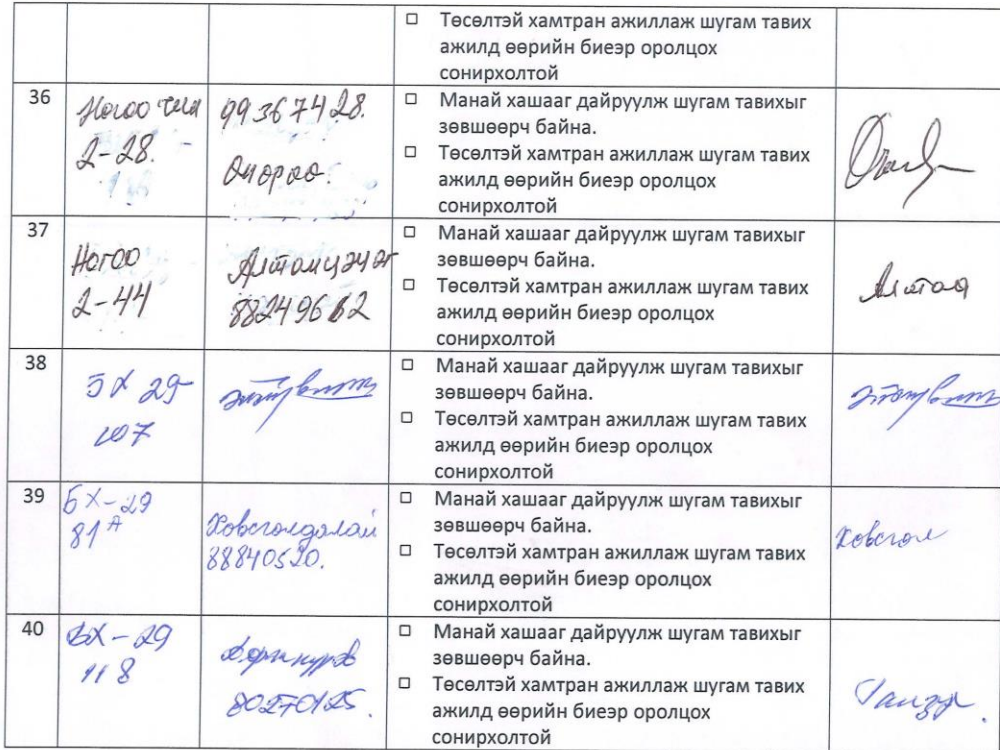 Төсөлтэй хамтран ажиллаж шугам тавих
ажилд өөрийн биеэр оролцох
сонирхолтой
36
2-28.
99367428.
Манай хашааг дайруулж шугам тавихыг
зөвшөөрч байна.
Төсөлтэй хамтран ажиллаж шугам тавих
ажилд өөрийн биеэр оролцох
сонирхолтой
37
Ногоо
2-44
Алтанцэцэг
Манай хашааг дайруулж шугам тавихыг
зөвшөөрч байна.
Төсөлтэй хамтран ажиллаж шугам тавих
ажилд өөрийн биеэр оролцох
сонирхолтой
Алтаа
38
БХ 29
107
Манай хашааг дайруулж шугам тавихыг
зөвшөөрч байна.
Төсөлтэй хамтран ажиллаж шугам тавих
ажилд өөрийн биеэр оролцох
сонирхолтой
39
БХ-29
81А
Ховсголдалай
88840520.
Манай хашааг дайруулж шугам тавихыг
зөвшөөрч байна.
Төсөлтэй хамтран ажиллаж шугам тавих
ажилд өөрийн биеэр оролцох
сонирхолтой
Ховсгол
40
БХ-29
118
80270125.
Манай хашааг дайруулж шугам тавихыг
зөвшөөрч байна.
Төсөлтэй хамтран ажиллаж шугам тавих
ажилд өөрийн биеэр оролцох
сонирхолтой